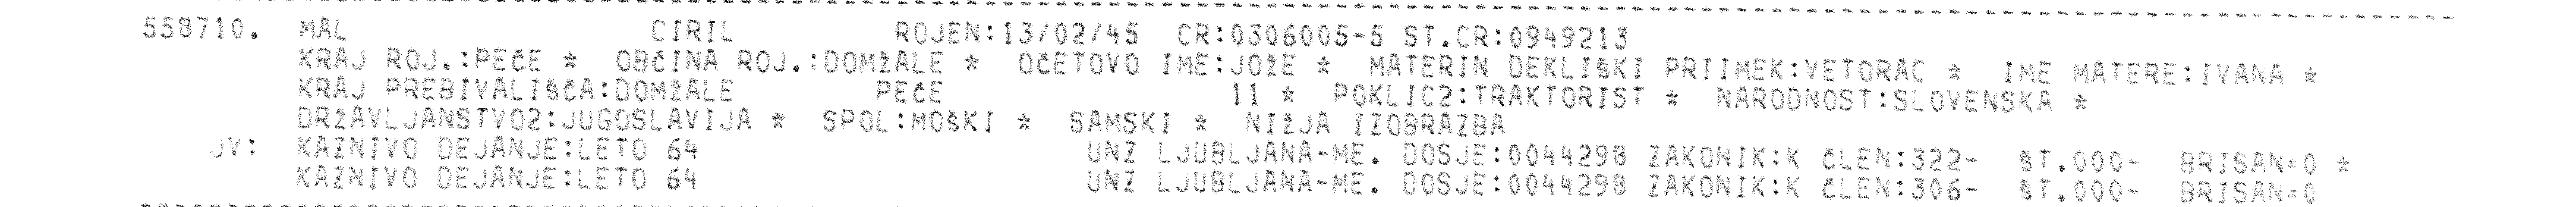 558710. MAL CIRIL ROJEN:13/02/45 CR:0306005-5 ST.CR:0949213
KRAJ ROJ.:PEČE * OBČINA ROJ.:DOMŽALE * OČETOVO IME:JOŽE * MATERIN DEKLIŠKI PRIIMEK:VETORAC * IME MATERE:IVANA *
KRAJ PREBIVALIŠČA:DOMŽALE PEČE 11 * POKLIC2:TRAKTORIST * NARODNOST:SLOVENSKA *
DRŽAVLJANSTVO2:JUGOSLAVIJA * SPOL:MOŠKI * SAMSKI * NIŽJA IZOBRAZBA
JV: KAZNIVO DEJANJE:LETO 64 UNZ LJUBLJANA-ME. DOSJE:0044298 ZAKONIK:K ČLEN:322- ŠT.000- BRISAN=0 *
KAZNIVO DEJANJE:LETO 64 UNZ LJUBLJANA-ME. DOSJE:0044298 ZAKONIK:K ČLEN:306- ŠT.000- BRISAN=0